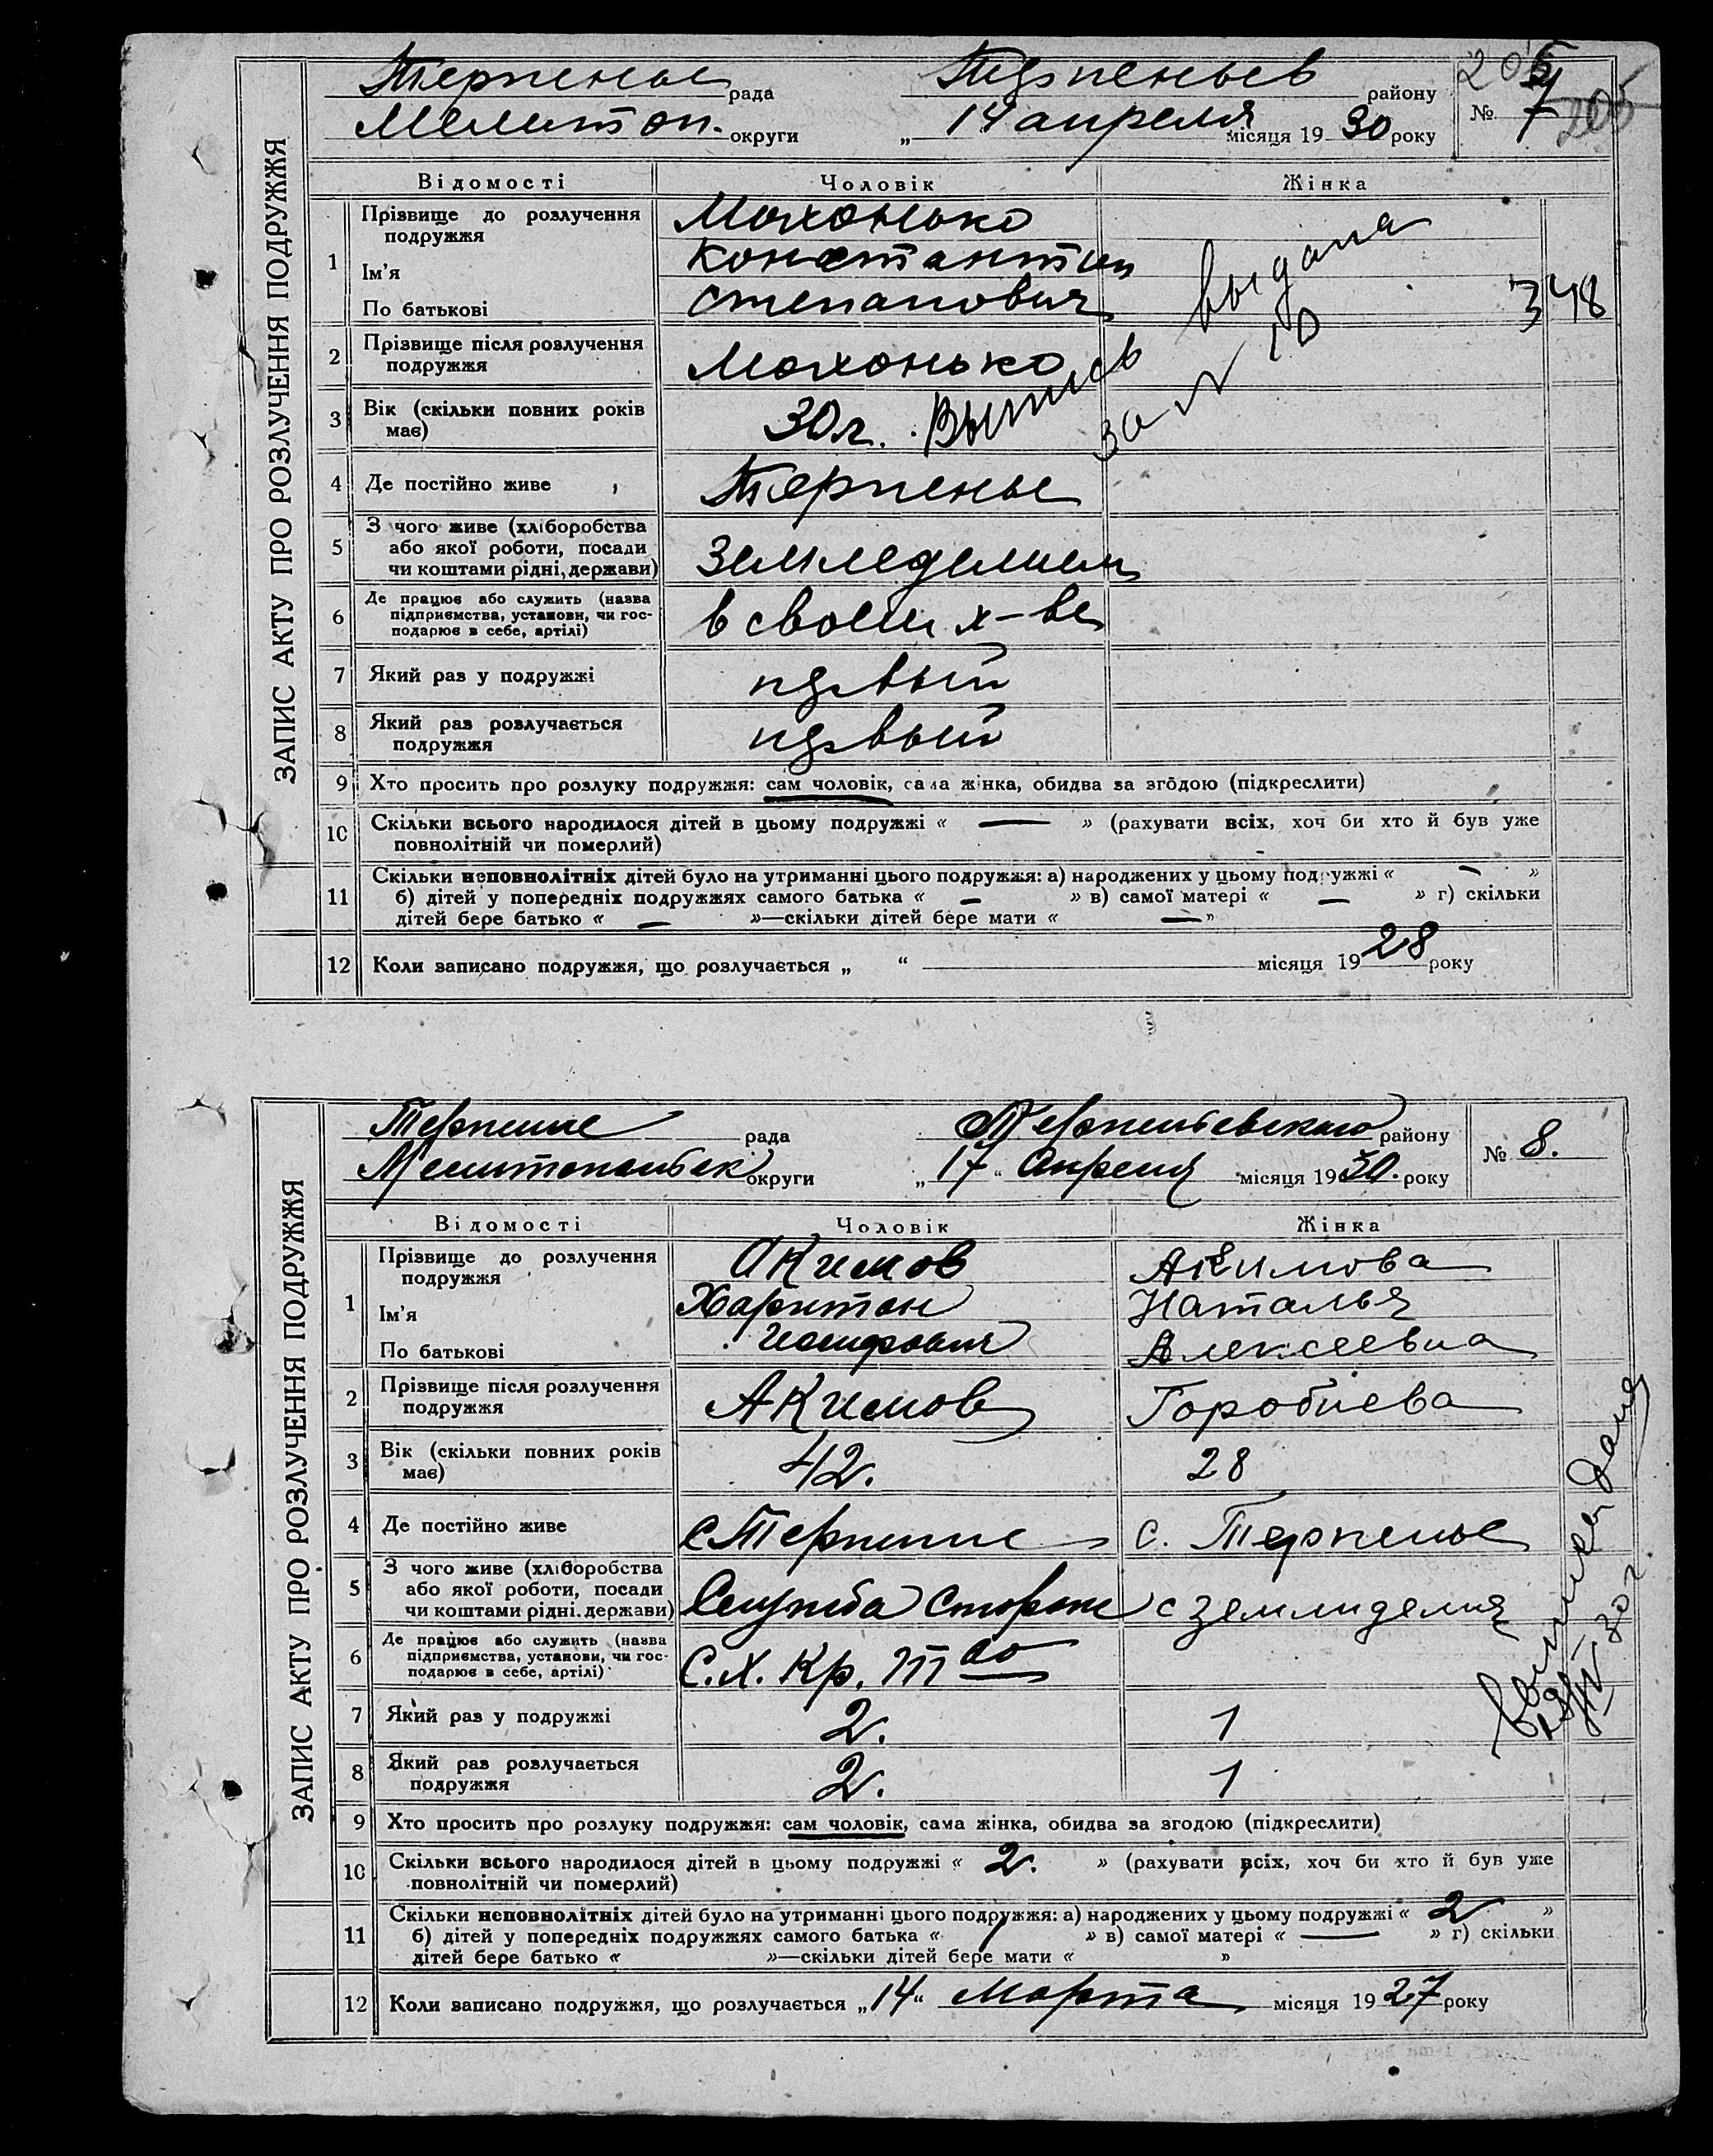 ЗАПИС АКТУ ПРО РОЗЛУЧЕННЯ ПОДРУЖЖЯ
Терпенье рада Терпеньев району
Мелитоп. округи „ 14 апреля місяця 19 30 року № 7
205
Відомості Чоловік Жінка
1 Прізвище до розлучення подружжя Мохонько
Ім'я Константин
По батькові Степанович
348
2 Прізвище після розлучення подружжя Мохонько
3 Вік (скільки повних років має) 30 л.
Выпись выдана
за № 10
4 Де постійно живе Терпенье
5 З чого живе (хліборобства
або якої роботи, посади
чи коштами рідні, держави) Земледелием
6 Де працює або служить (назва
підприємства, установи, чи гос-
подарює в себе, артілі) в своем х-ве
7 Який раз у подружжі первый
8 Який раз розлучається
подружжя первый
9 Хто просить про розлуку подружжя: сам чоловік, сама жінка, обидва за згодою (підкреслити)
10 Скільки всього народилося дітей в цьому подружжі « — » (рахувати всіх, хоч би хто й був уже
повнолітній чи померлий)
11 Скільки неповнолітніх дітей було на утриманні цього подружжя: а) народжених у цьому подружжі « — »
б) дітей у попередніх подружжях самого батька « — » в) самої матері « — » г) скільки
дітей бере батько « — »—скільки дітей бере мати « — »
12 Коли записано подружжя, що розлучається „ “ місяця 19 28 року
ЗАПИС АКТУ ПРО РОЗЛУЧЕННЯ ПОДРУЖЖЯ
Терпение рада Терпеньевского району
Мелитопольск округи „ 17 “ Апреля місяця 19 30. року № 8.
Відомості Чоловік Жінка
1 Прізвище до розлучення подружжя Акимов Акимова
Ім'я Харитон Наталья
По батькові Иосифович Алексеевна
2 Прізвище після розлучення
подружжя Акимов Горобцева
3 Вік (скільки повних років
має) 42. 28
4 Де постійно живе с Терпение с. Терпенье
5 З чого живе (хліборобства
або якої роботи, посади
чи коштами рідні, держави) Служба Сторож с земледелия
6 Де працює або служить (назва
підприємства, установи, чи гос-
подарює в себе, артілі) С.Х. Кр. Т во
7 Який раз у подружжі 2. 1
8 Який раз розлучається
подружжя 2. 1
9 Хто просить про розлуку подружжя: сам чоловік, сама жінка, обидва за згодою (підкреслити)
10 Скільки всього народилося дітей в цьому подружжі « 2. » (рахувати всіх, хоч би хто й був уже
повнолітній чи померлий)
11 Скільки неповнолітніх дітей було на утриманні цього подружжя: а) народжених у цьому подружжі « 2 »
б) дітей у попередніх подружжях самого батька « » в) самої матері « — » г) скільки
дітей бере батько « »—скільки дітей бере мати « »
12 Коли записано подружжя, що розлучається „ 14 “ Марта місяця 19 27 року